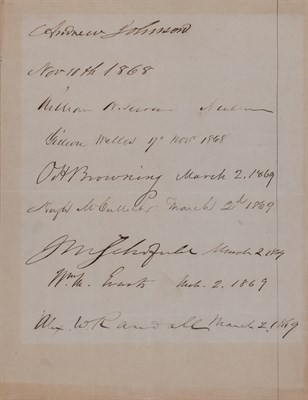 Andrew Johnson
Nov 10th 1868
William H. Seward
Gideon Welles 17 Nov 1868
O H Browning March 2, 1869
Hugh McCulloch March 2d 1869
J M Schofield March 2 1869
Wm. M. Evarts Mch. 2. 1869
Alex. W Randall March 2, 1869